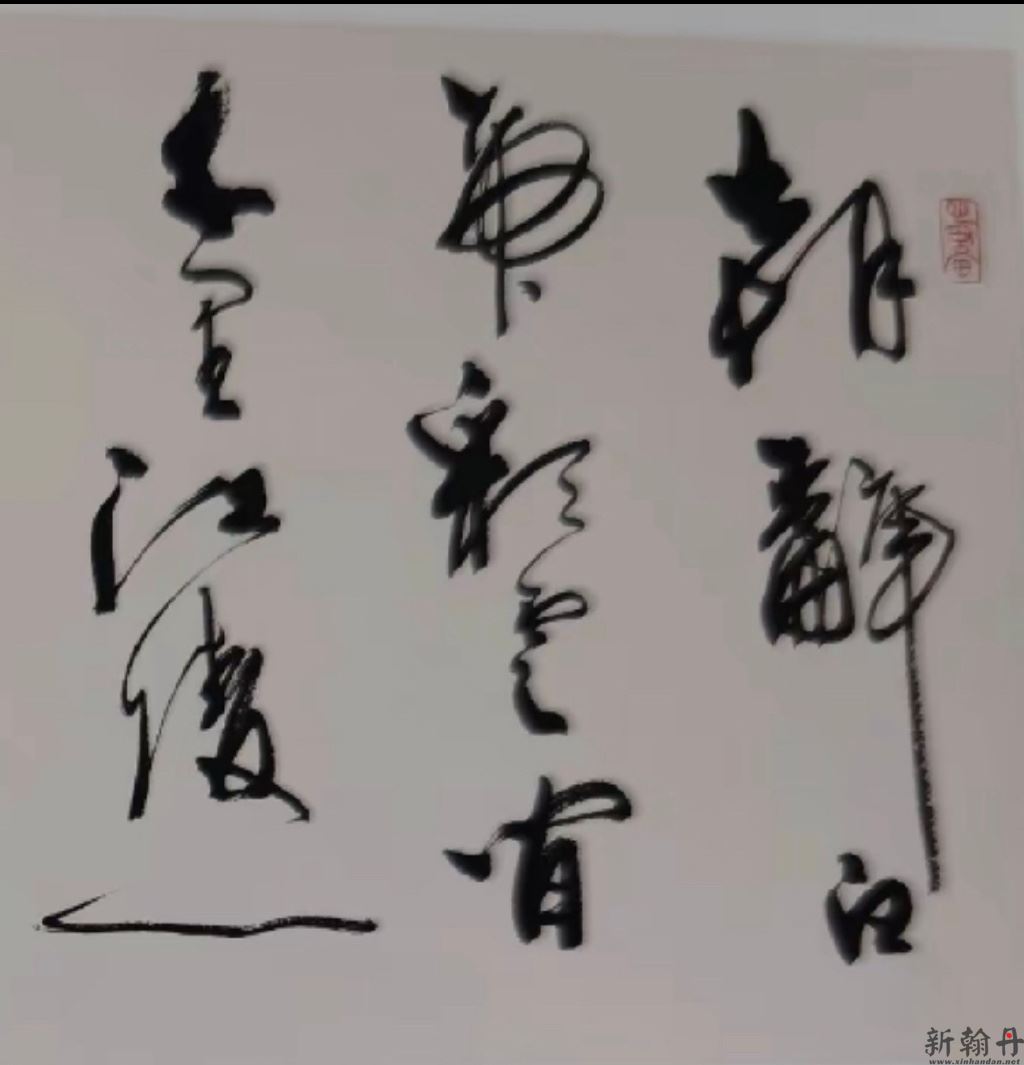 朝辭白
帝彩雲間
千里江陵一
新翰丹
www.xinhandan.net